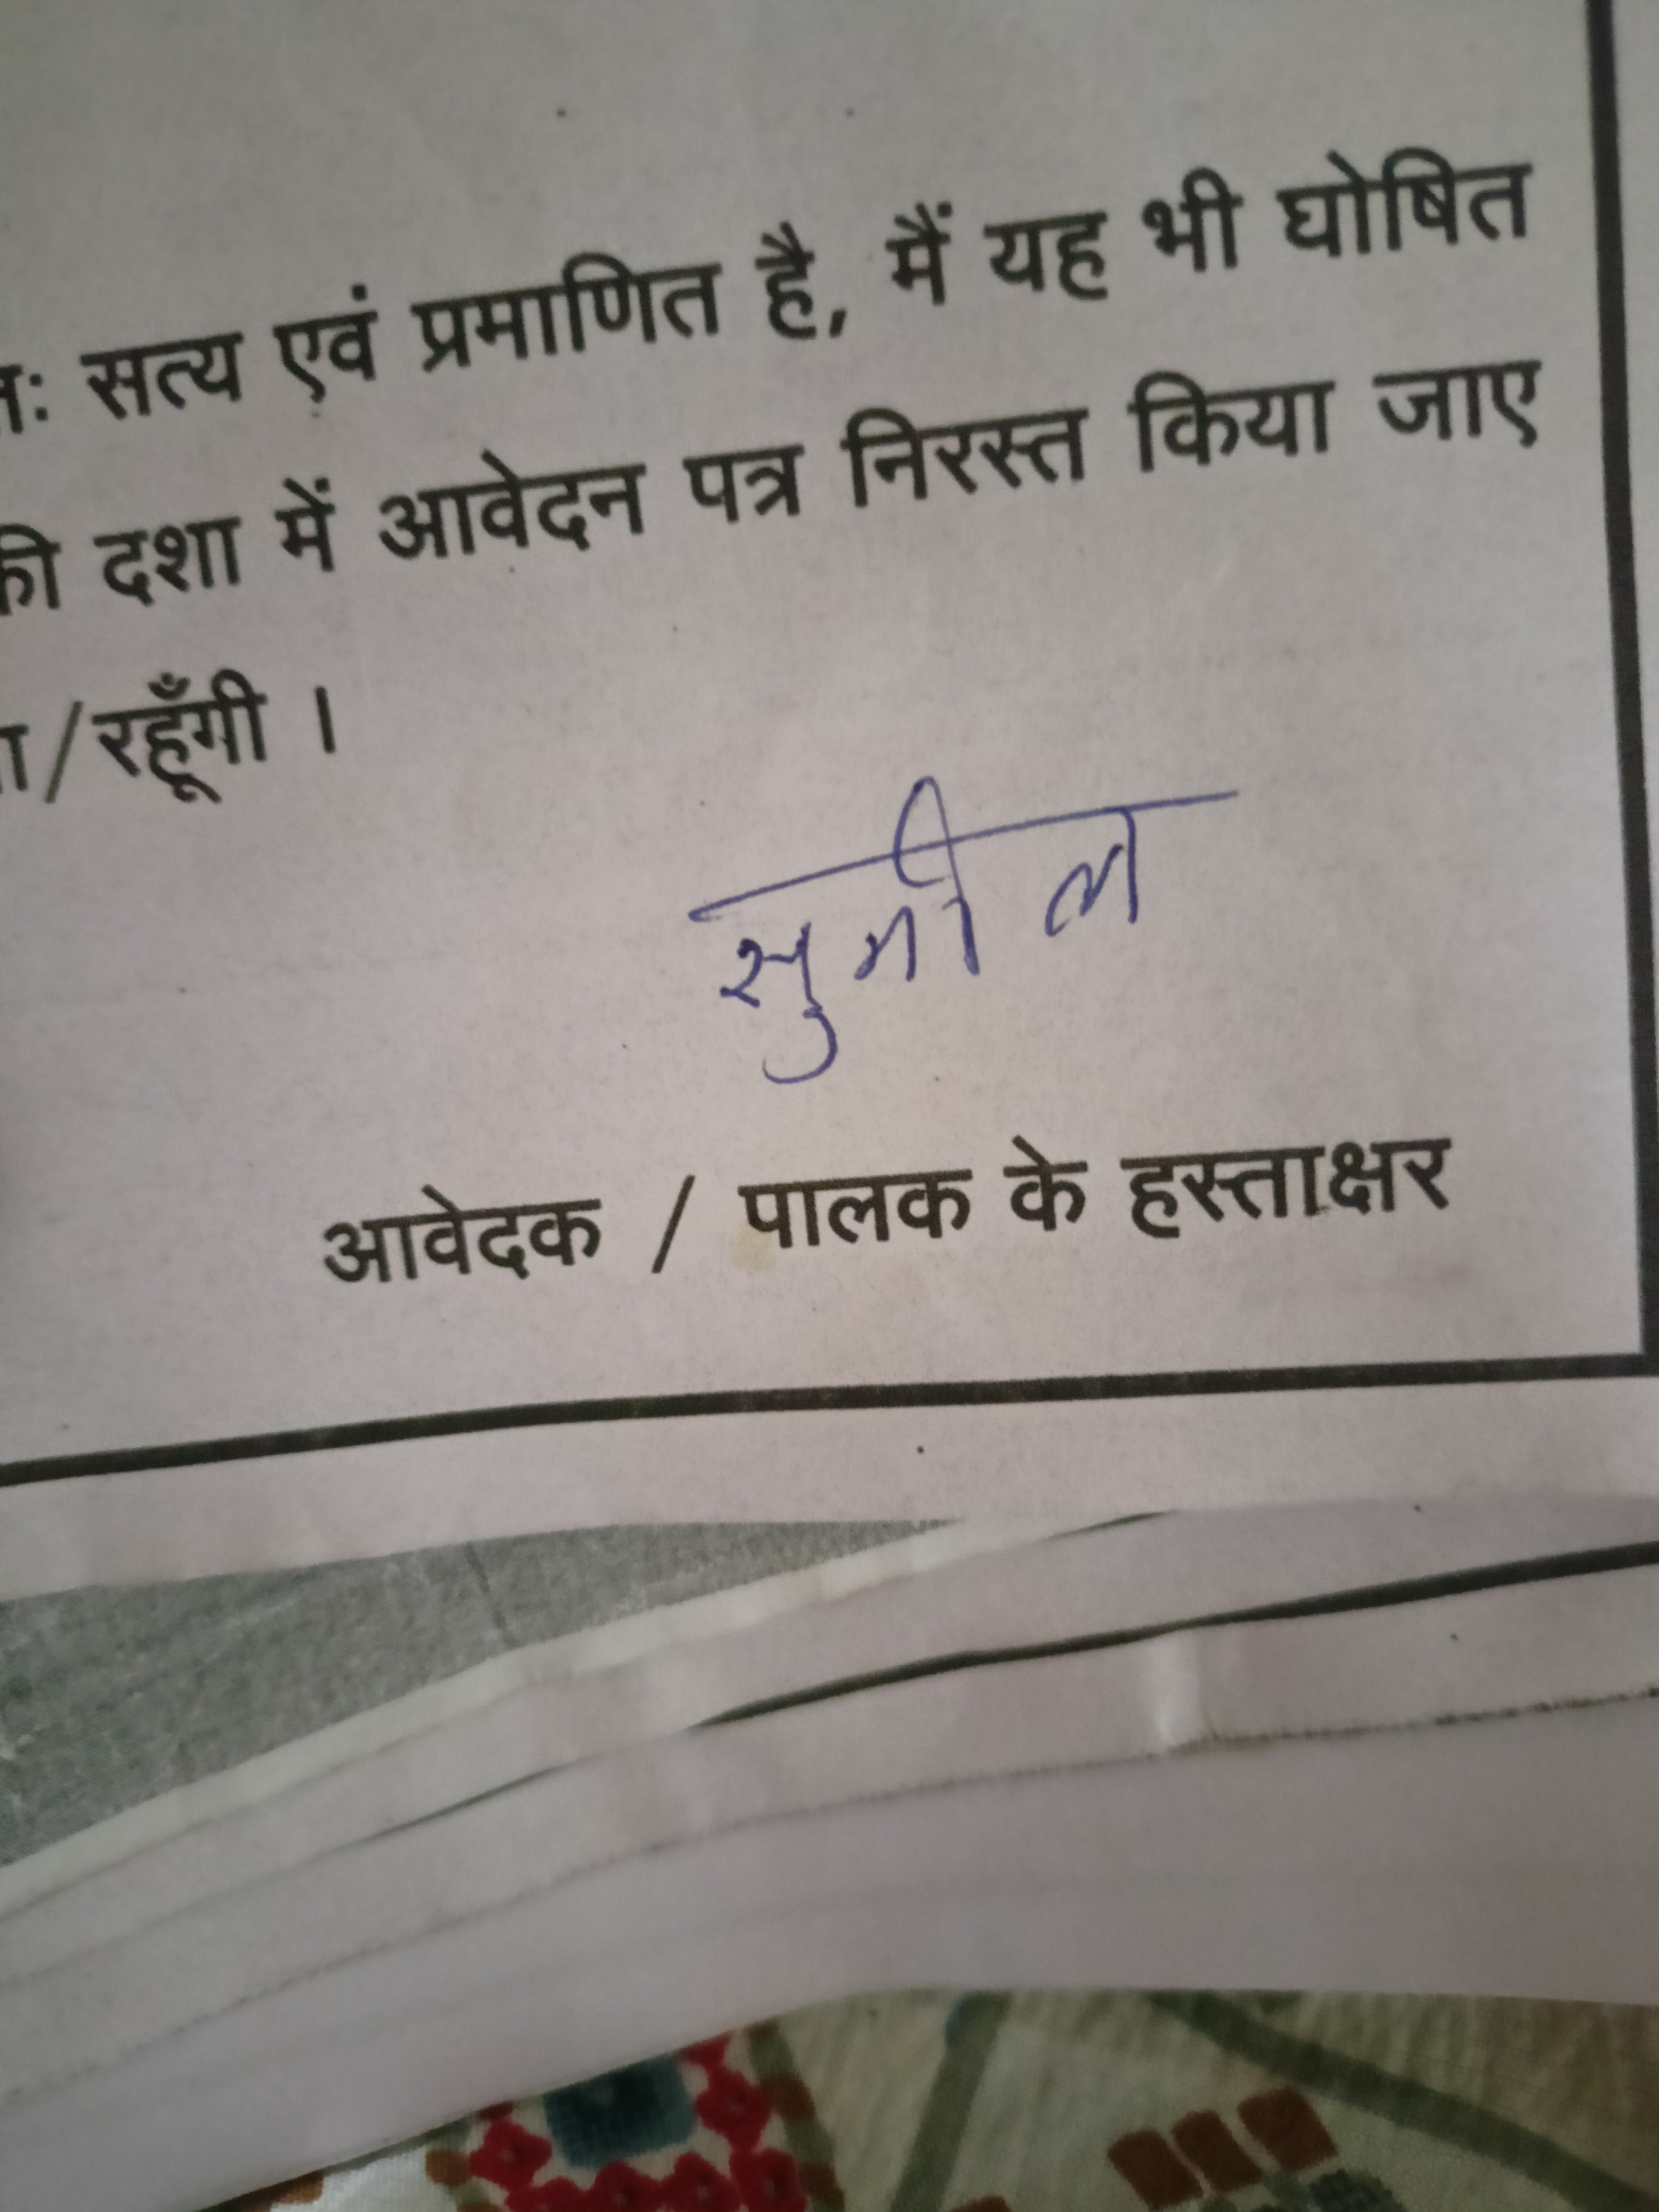 तः सत्य एवं प्रमाणित है, मैं यह भी घोषित
की दशा में आवेदन पत्र निरस्त किया जाए
ा/रहूँगी ।
सुनील
आवेदक / पालक के हस्ताक्षर